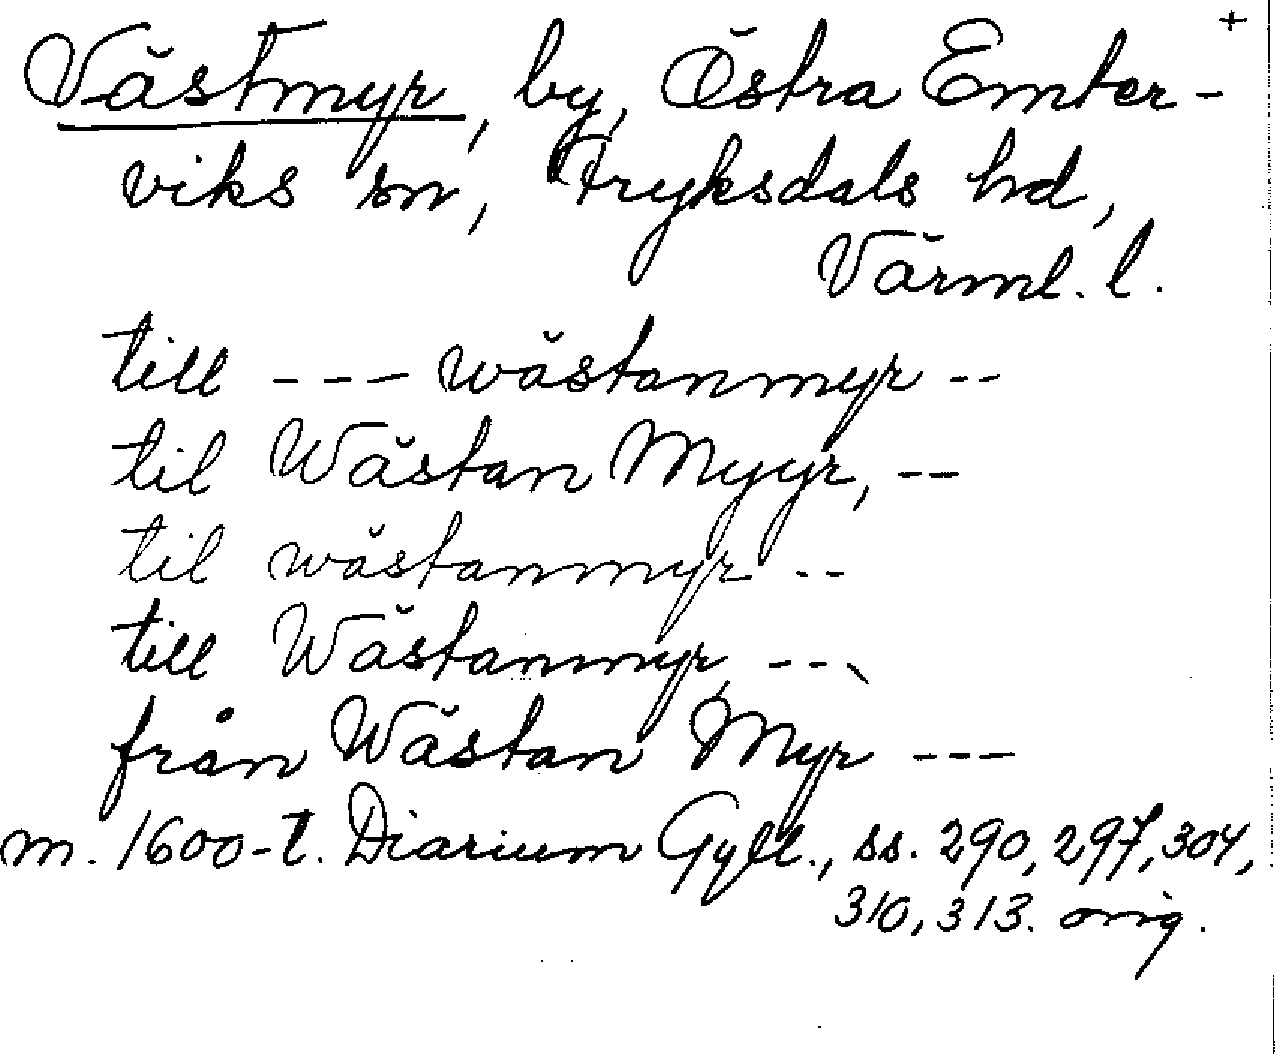 +
Västmyr, by, Östra Emter-
viks sn, Fryksdals hd,
Värml. l.
till --- wästanmyr --
til Wästan Myyr, --
til wästanmyr --
till Wästanmyr, ---
från Wästan Myr ---
m. 1600-t. Diarium Gyll., ss. 290, 297, 304,
310, 313. orig.